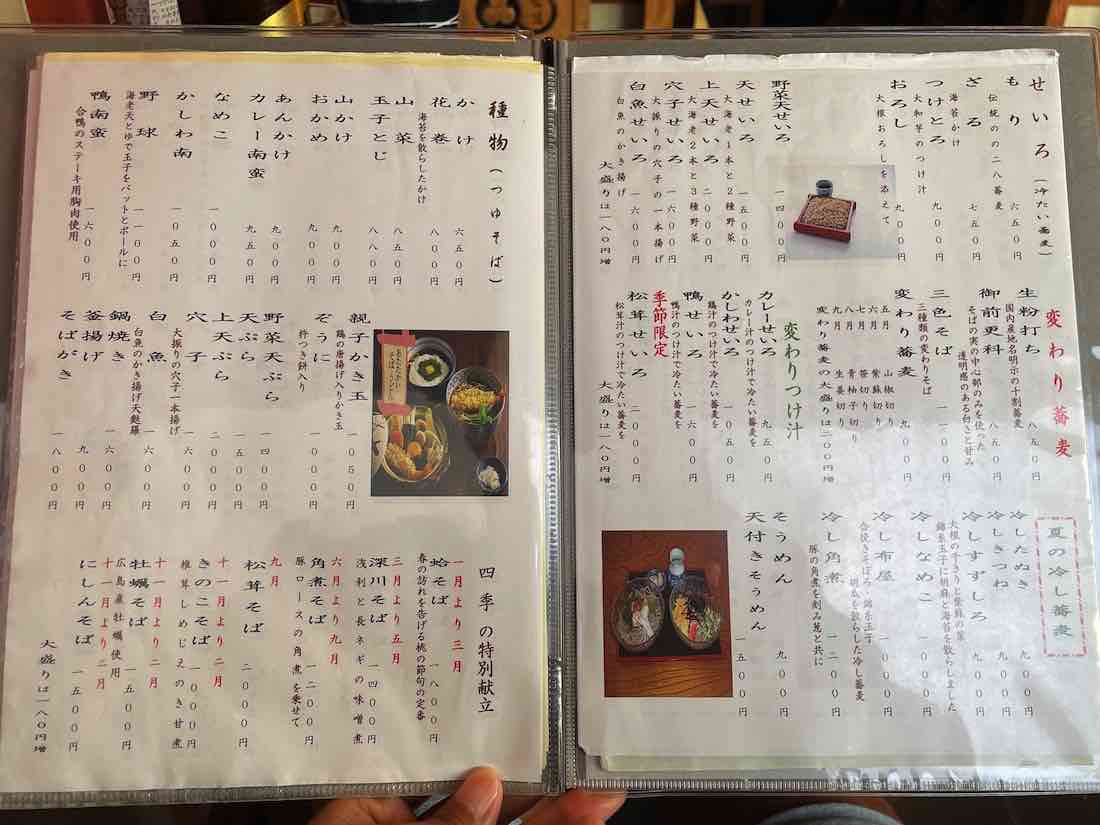 せいろ(冷たい蕎麦)
もり 六五〇円
伝統の二八蕎麦
ざる 七五〇円
海苔かけ
つけとろ 九〇〇円
大和芋のつけ汁
おろし 九〇〇円
大根おろしを添えて
野菜天せいろ 一四〇〇円
天せいろ 一五〇〇円
大海老1本と2種野菜
上天せいろ 二〇〇〇円
大海老2本と3種野菜
穴子せいろ 一六〇〇円
大振りの穴子の一本揚げ
白魚せいろ 一六〇〇円
白魚のかき揚げ
大盛りは一八〇円増
変わり蕎麦
生粉打ち 八五〇円
国内産地名明示の十割蕎麦
御前更科 八五〇円
そばの実の中心部のみを使った
透明感のある白さと甘み
三色そば 一一〇〇円
三種類の変わりそば
変わり蕎麦 九〇〇円
五月 山椒切り
六月 紫蘇切り
七月 笹切り
八月 青柚子切り
九月 生姜切り
変わり蕎麦の大盛りは二〇〇円増
変わりつけ汁
カレーせいろ 九五〇円
カレー汁のつけ汁で冷たい蕎麦を
かしわせいろ 一〇五〇円
鶏汁のつけ汁で冷たい蕎麦を
鴨せいろ 一六〇〇円
鴨汁のつけ汁で冷たい蕎麦を
季節限定
松茸せいろ 二一〇〇円
松茸汁のつけ汁で冷たい蕎麦を
大盛りは一八〇円増
夏の冷し蕎麦
冷したぬき 九〇〇円
冷しきつね 九〇〇円
冷しすずしろ 九〇〇円
大根の千きりと紫蘇の葉
錦糸玉子に胡麻と海苔を散らしました
冷しなめこ 九五〇円
冷し布屋 九五〇円
合挽きそぼろ・錦糸玉子
胡瓜を散らした冷し蕎麦
冷し角煮 一二〇〇円
豚の角煮を刻み葱と共に
そうめん 九〇〇円
天付きそうめん 一五〇〇円
種物(つゆそば)
かけ 六五〇円
花巻 八〇〇円
海苔を散らしたかけ
山菜 八五〇円
玉子とじ 八八〇円
山かけ 九〇〇円
おかめ 九〇〇円
あんかけ 九〇〇円
カレー南蛮 九五〇円
なめこ 九五〇円
かしわ南 一〇五〇円
野球 一一〇〇円
海老天とゆで玉子をバットとボールに
鴨南蛮 一六〇〇円
合鴨のステーキ用胸肉使用
親子かき玉 一〇五〇円
鶏の唐揚げ入りかき玉
ぞうに 一一〇〇円
杵つき餅入り
野菜天ぷら 一四〇〇円
天ぷら 一五〇〇円
上天ぷら 二〇〇〇円
穴子 一六〇〇円
大振りの穴子一本揚げ
白魚 一六〇〇円
白魚のかき揚げ天麩羅
鍋焼き 一六〇〇円
釜揚げ 九〇〇円
そばがき 一八〇〇円
四季の特別献立
一月より三月
蛤そば 一八〇〇円
春の訪れを告げる桃の節句の定番
三月より五月
深川そば 一四〇〇円
浅利と長ネギの味噌煮
六月より九月
角煮そば 一二〇〇円
豚ロースの角煮を乗せて
九月
松茸そば 二一〇〇円
十一月より二月
きのこそば 一〇〇〇円
椎茸しめじえのき甘煮
十一月より二月
牡蠣そば 一五〇〇円
広島産牡蠣使用
十一月より二月
にしんそば 一五〇〇円
大盛りは一八〇円増